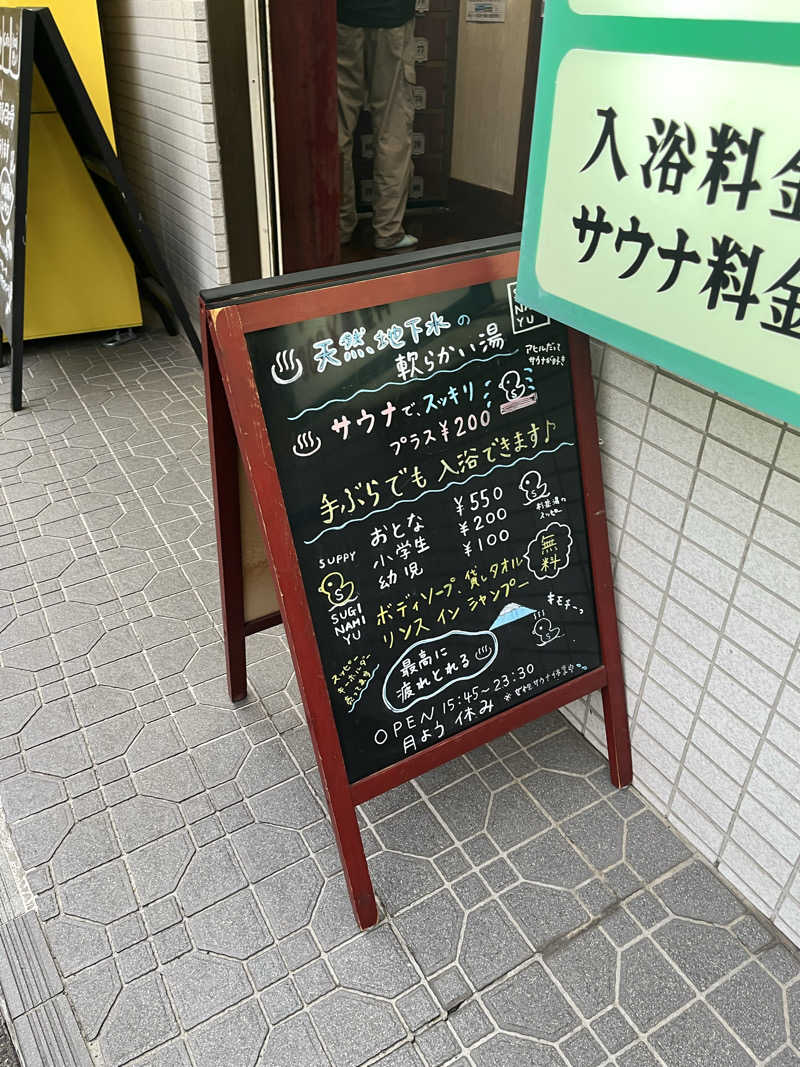 天然地下水の
軟らかい湯
アヒルだって
サウナが好き
サウナで、スッキリ
プラス¥200
手ぶらでも入浴できます♪
おとな ¥550
小学生 ¥200
幼児 ¥100
無料
SUPPY
SUGI
NAMI
YU
ボディソープ、貸しタオル
リンスインシャンプー
キモチーっ
スッピー
キーホルダー
売ってます
最高に
疲れとれる
OPEN 15:45～23:30
月よう休み
入浴料金
サウナ料金